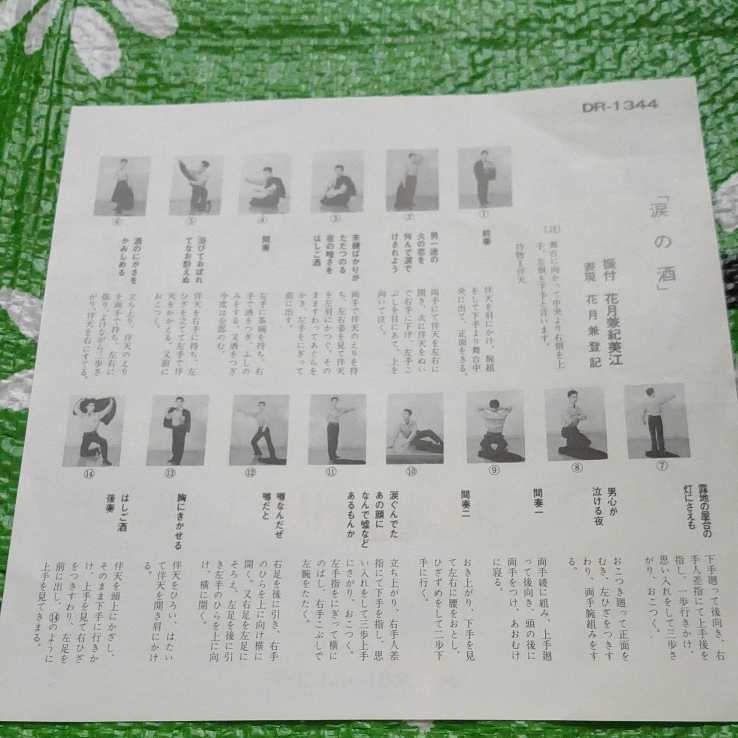 DR-1344
「涙の酒」
振付 花月兼紀美江
表現 花月兼登記
〔註〕 舞台に向かって中央より右側を上
手、左側を下手と言います。
持物=伴天
①
前奏
伴天を肩にかけ、腕組
をして下手より舞台中
央に出て、正面をきる。
②
男一途の
火の恋を
何んで涙で
けされよう
両手にて伴天を左右に
開き、次に伴天をぬい
で右手に下げ、左手こ
ぶしを目にあて、上を
向いて泣く。
③
未練ばかりが
ただつのる
夜の暗さを
はしご酒
両手で伴天のえりを持
ち、左右姿を見て伴天
を左肩にかつぐ。その
ままわってあぐらを
かき、左手をにぎって
前に出す。
④
間奏
左手に茶碗を持ち、右
手で酒をつぎ、ふしの
みをする。又酒をつぎ
今度は全部のむ。
⑤
浴びておぼれ
てなお酔えぬ
伴天を右手に持ち、左
ひざを立てて左手で伴
天をかかえる。又前に
おこつく。
⑥
酒のにがさを
かみしめる
立ち上り、伴天のえり
を両手で持ち、左右に
振り、よけながら二歩さ
がり、伴天を右にすてる。
⑦
露地の屋台の
灯にさえも
下手廻って後向き、右
手人差指にて上手後を
指し、一歩行きかけ、
思い入れをして三歩さ
がり、おこつく。
⑧
男心が
泣ける夜
おこつき廻って正面を
むき、左ひざをつきす
わり、両手腕組みをす
る。
⑨
間奏一
両手綾に組み、上手廻
って後向き、頭の後に
両手をつけ、あおむけ
に寝る。
⑩
間奏二
おき上がり、下手を見
て左右に腰をおとし、
ひざずめをして二歩下
手に行く。
⑪
涙ぐんでた
あの顔に
なんで嘘など
あるもんか
立ち上がり、右手人差
指にて下手を指し、思
い入れをして三歩上手
にさがり、おこつく。
左手指をにぎって横に
のばし、右手こぶしで
左腕をたたく。
⑫
噂なんだぜ
噂だと
右足を後に引き、右手
のひらを上に向け横に
開く。又右足を左足に
そろえ、左足を後に引
き左手のひらを上に向
け、横に開く。
⑬
胸にきかせる
伴天をひろい、はたい
て伴天を開き肩にかけ
る。
⑭
はしご酒
後奏
伴天を頭上にかざし、
そのまま下手に行きか
け、上手を見て右ひざ
をつきすわり、左足を
前に出し、⑭のように
上手を見てきまる。